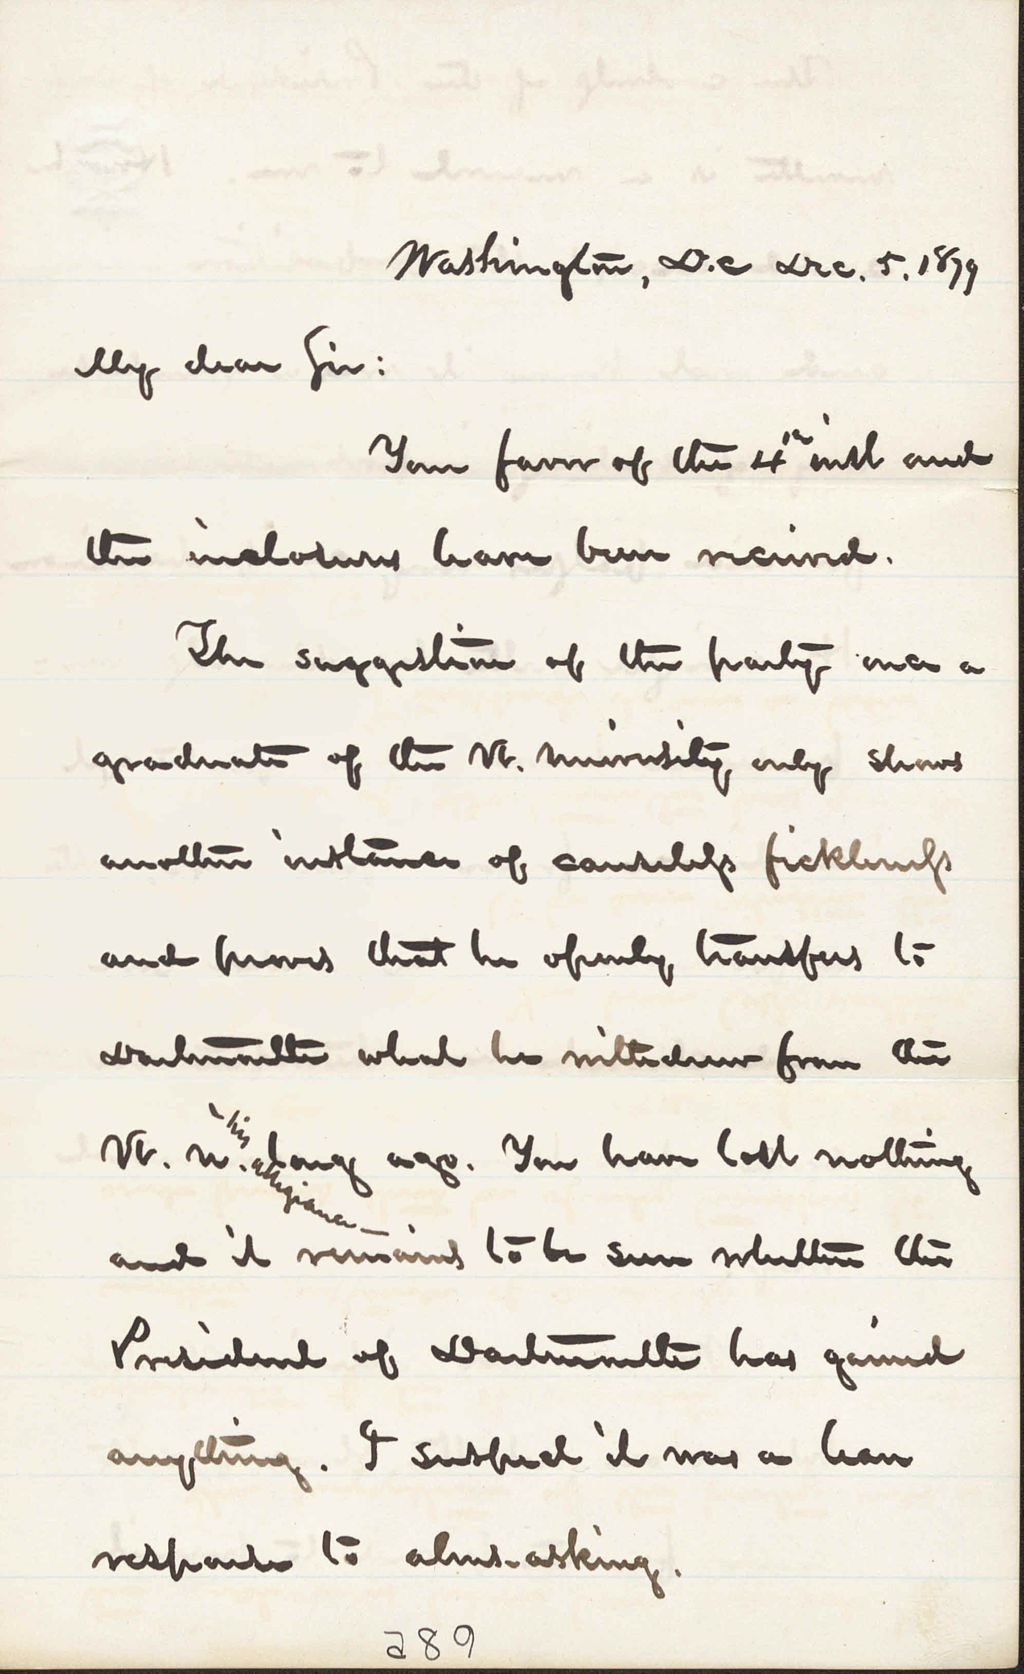 Washington, D.C Dec. 5. 1879
My dear Sir:
Your favor of the 4th inst and
the inclosures have been received.
The suggestion of the party once a
graduate of the Vt. University only shows
another instance of causeless fickleness
and proves that he openly transfers to
Dartmouth what he withdrew from the
Vt. U. long ago. You have lost nothing
his allegiance—
and it remains to be seen whether the
President of Dartmouth has gained
anything. I suspect it was a lean
response to alms-asking.
289